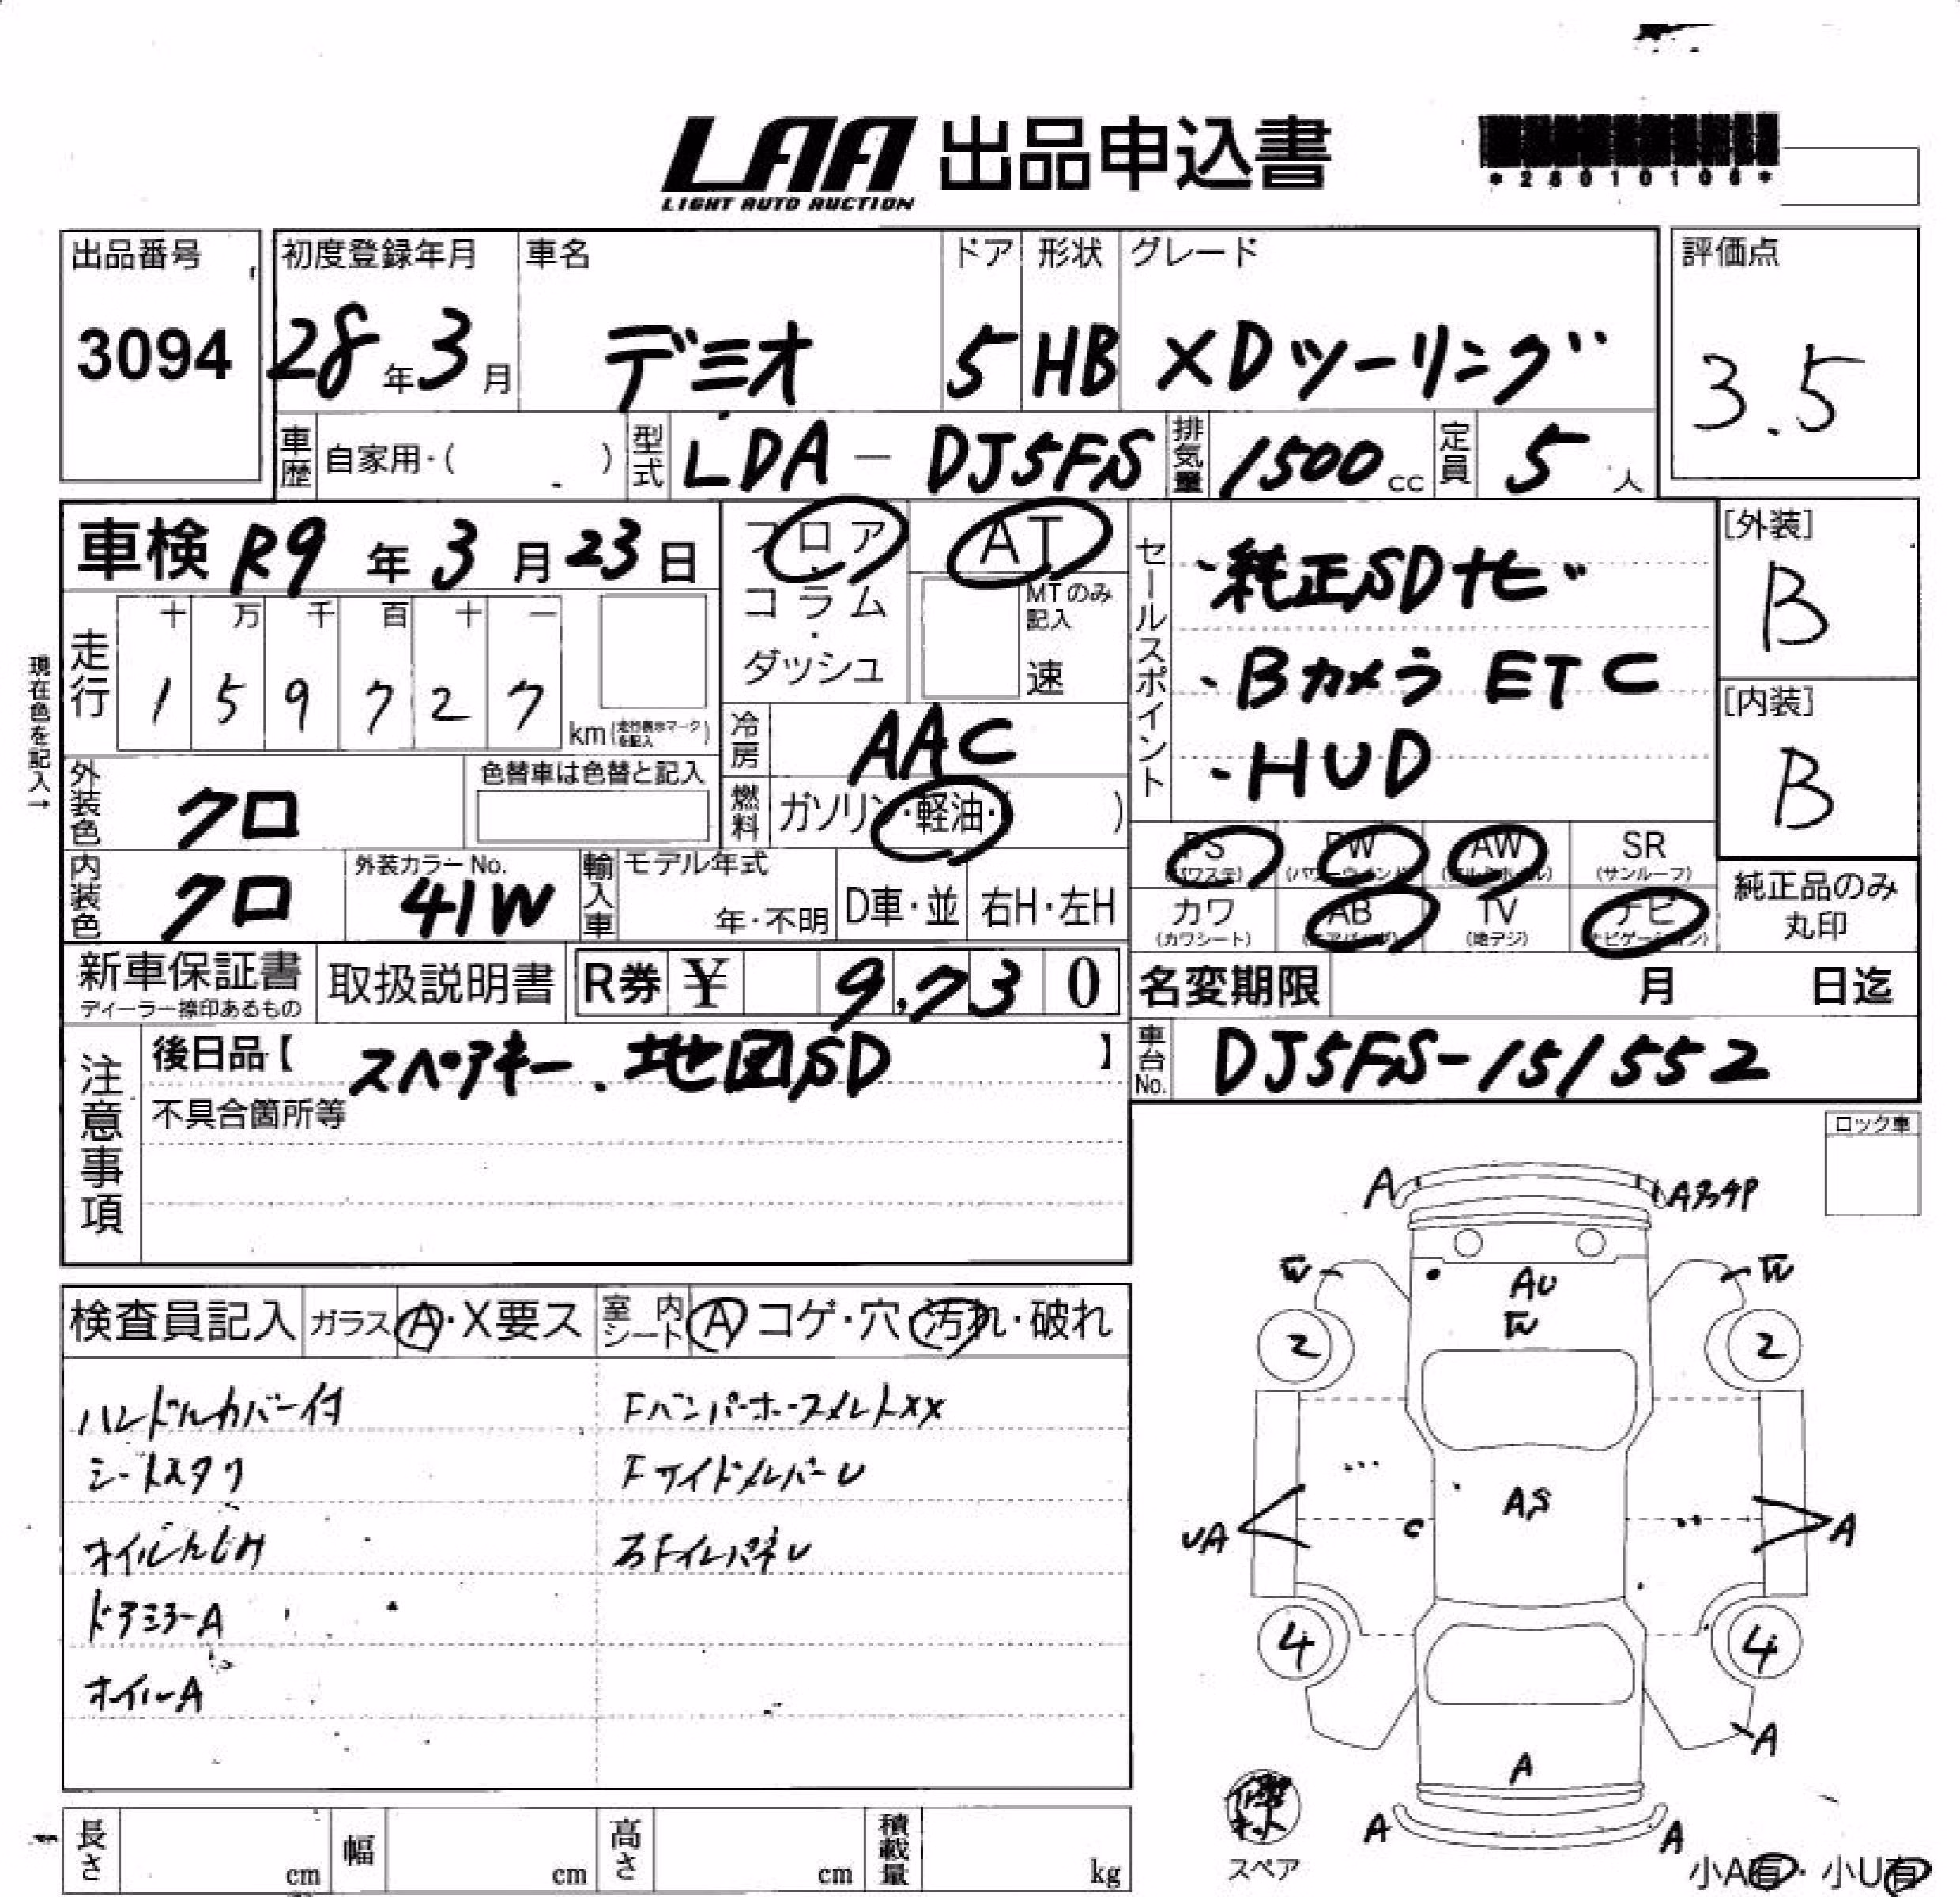 LAA 出品申込書
LIGHT AUTO AUCTION
*28010106*
出品番号 初度登録年月 車名 ドア 形状 グレード 評価点
3094 28年3月 デミオ 5 HB XDツーリング 3.5
車歴 自家用・( ) 型式 LDA - DJ5FS 排気量 1500 cc 定員 5 人
車検 R9年3月23日 フロア AT
コラム・ MTのみ記入
ダッシュ 速
セールスポイント
・純正SDナビ
・Bカメラ ETC
・HUD
[外装]
B
[内装]
B
現在色を記入→
走行 十 万 千 百 十 一
1 5 9 7 2 7 km(走行表示マークを記入)
冷房 AAC
外装色 クロ 色替車は色替と記入
燃料 ガソリン・軽油・( )
PS (パワステ) PW (パワーウインド) AW (アルミホイル) SR (サンルーフ)
内装色 クロ 外装カラーNo. 41W 輸入車 モデル年式 年・不明 D車・並 右H・左H
カワ (カワシート) AB (エアバッグ) TV (地デジ) ナビ (ナビゲーション)
純正品のみ丸印
新車保証書 ディーラー捺印あるもの 取扱説明書 R券 ¥ 9,730
名変期限 月 日迄
注意事項
後日品【 スペアキー、地図SD 】
不具合箇所等
車台No. DJ5FS-151552
ロック車
検査員記入 ガラス A・X要ス 室内シート A コゲ・穴・汚れ・破れ
ハンドルカバー付 FバンパーホースメントXX
シートスタリ FサイドメンバーU
オイルにじみ 右FインパネU
ドアミラーA
オイルA
A A
W W
AU
W
2 2
AS
UA A
4 4
A
A
A A
スペア
小A有・小U有
長さ cm 幅 cm 高さ cm 積載量 kg